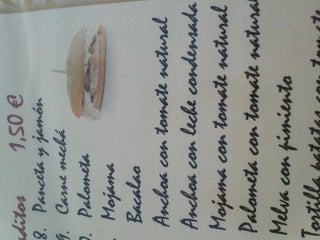 aditos 1,50 €
8. Panceta y jamón
9. Carne mechá
0. Palometa
Mojama
Bacalao
Anchoa con tomate natural
Anchoa con leche condensada
Mojama con tomate natural
Palometa con tomate natural
Melva con pimiento
Tortilla patatas con tomate